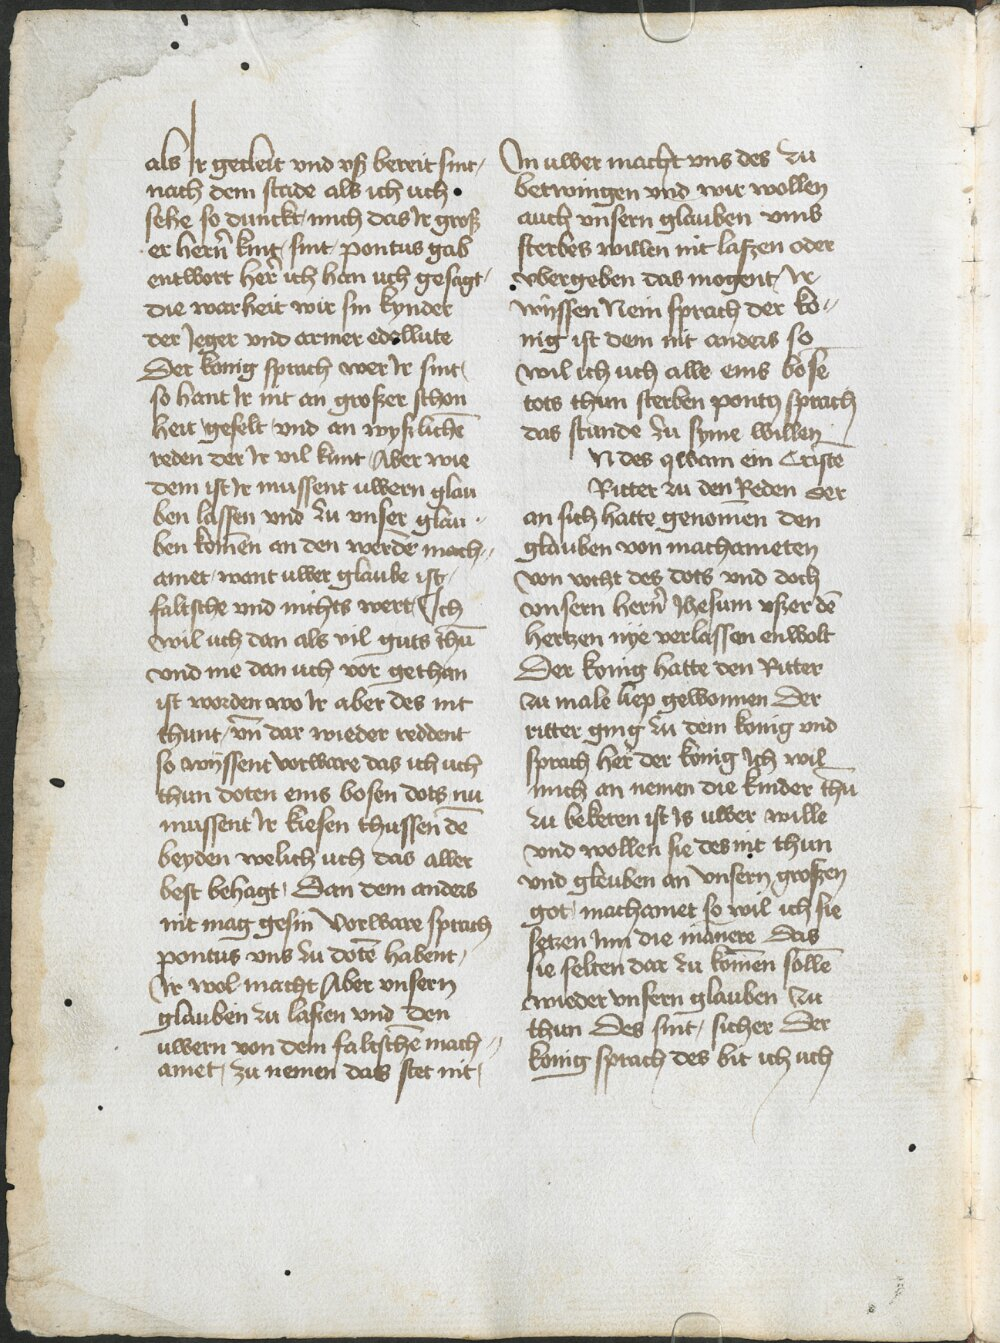 als Ir gecleit vnd vß bereit sint
nach dem stade als ich uch
sehe so dunckt mich das Ir groß
er hern̄ kint sint pontus gab
entwort her̄ ich han uch gesagt
die warheit wir sin kynder
der Jeger vnd armer edellute
Der konig sprach wer Ir sint
so hant Ir nit an großer schon
heit gefelt vnd an wyßlichē
reden der Ir vil kunt Aber wie
dem ist Ir mussent uwern glau
ben lassen vnd zu vnser glau
ben komēn an den werdē mach„
amet want uwer glaube ist
faltsche vnd nichts wert Ich
wil uch dan als vil guts thū
vnd me dan uch vor gethan
ist worden wo Ir aber des nit
thunt vn̄ dar wieder reddent
so wyssent vorware das ich uch
thun doten eins bosen dots nu
mussent Ir kiesen thussen dē
beyden welich uch das aller
best behagt Dan dem anders
nit mag gesin Vorware sprach
pontus vns zu dotē habent
Ir wol macht Aber vnsern
glauben zu laßen vnd den
uwern von dem faltschēn mach„
amet zu nemen das stet nit
In uwer macht vns des zu
betwingen vnd wir wollen
auch vnsern glauben vmb
sterbes willen nit laßen oder
vbergeben das mogent Ir
wyssen Nein sprach der ko„
nig ist dem nit anders so
wil ich uch alle eins bose
tots thun sterben pontꝯ sprach
das stunde zu syme willen
N des qwam ein Cristē
Ritter zu den Reden der
an sich hatte genomēn den
glauben von machameten
von vocht des dots vnd doch
vnsern hern̄ Jhesum vßer dē
hertzen nye verlassen enwolt
Der konig hatte den Ritter
zu male liep gewonnen Der
ritter ging zu dem konig vnd
sprach her̄ der konig Ich wil
mich an nemen die kinder thū
zu bekeren ist Is uwer wille
vnd wollen sie des nit thun
vnd gleuben an vnsern großen
got machamet so wil ich sie
setzen Inn die manere Das
sie selten dar zu komēn sollē
wieder vnsern glauben zu
thun Des sint sicher Der
konig sprach des bit ich uch